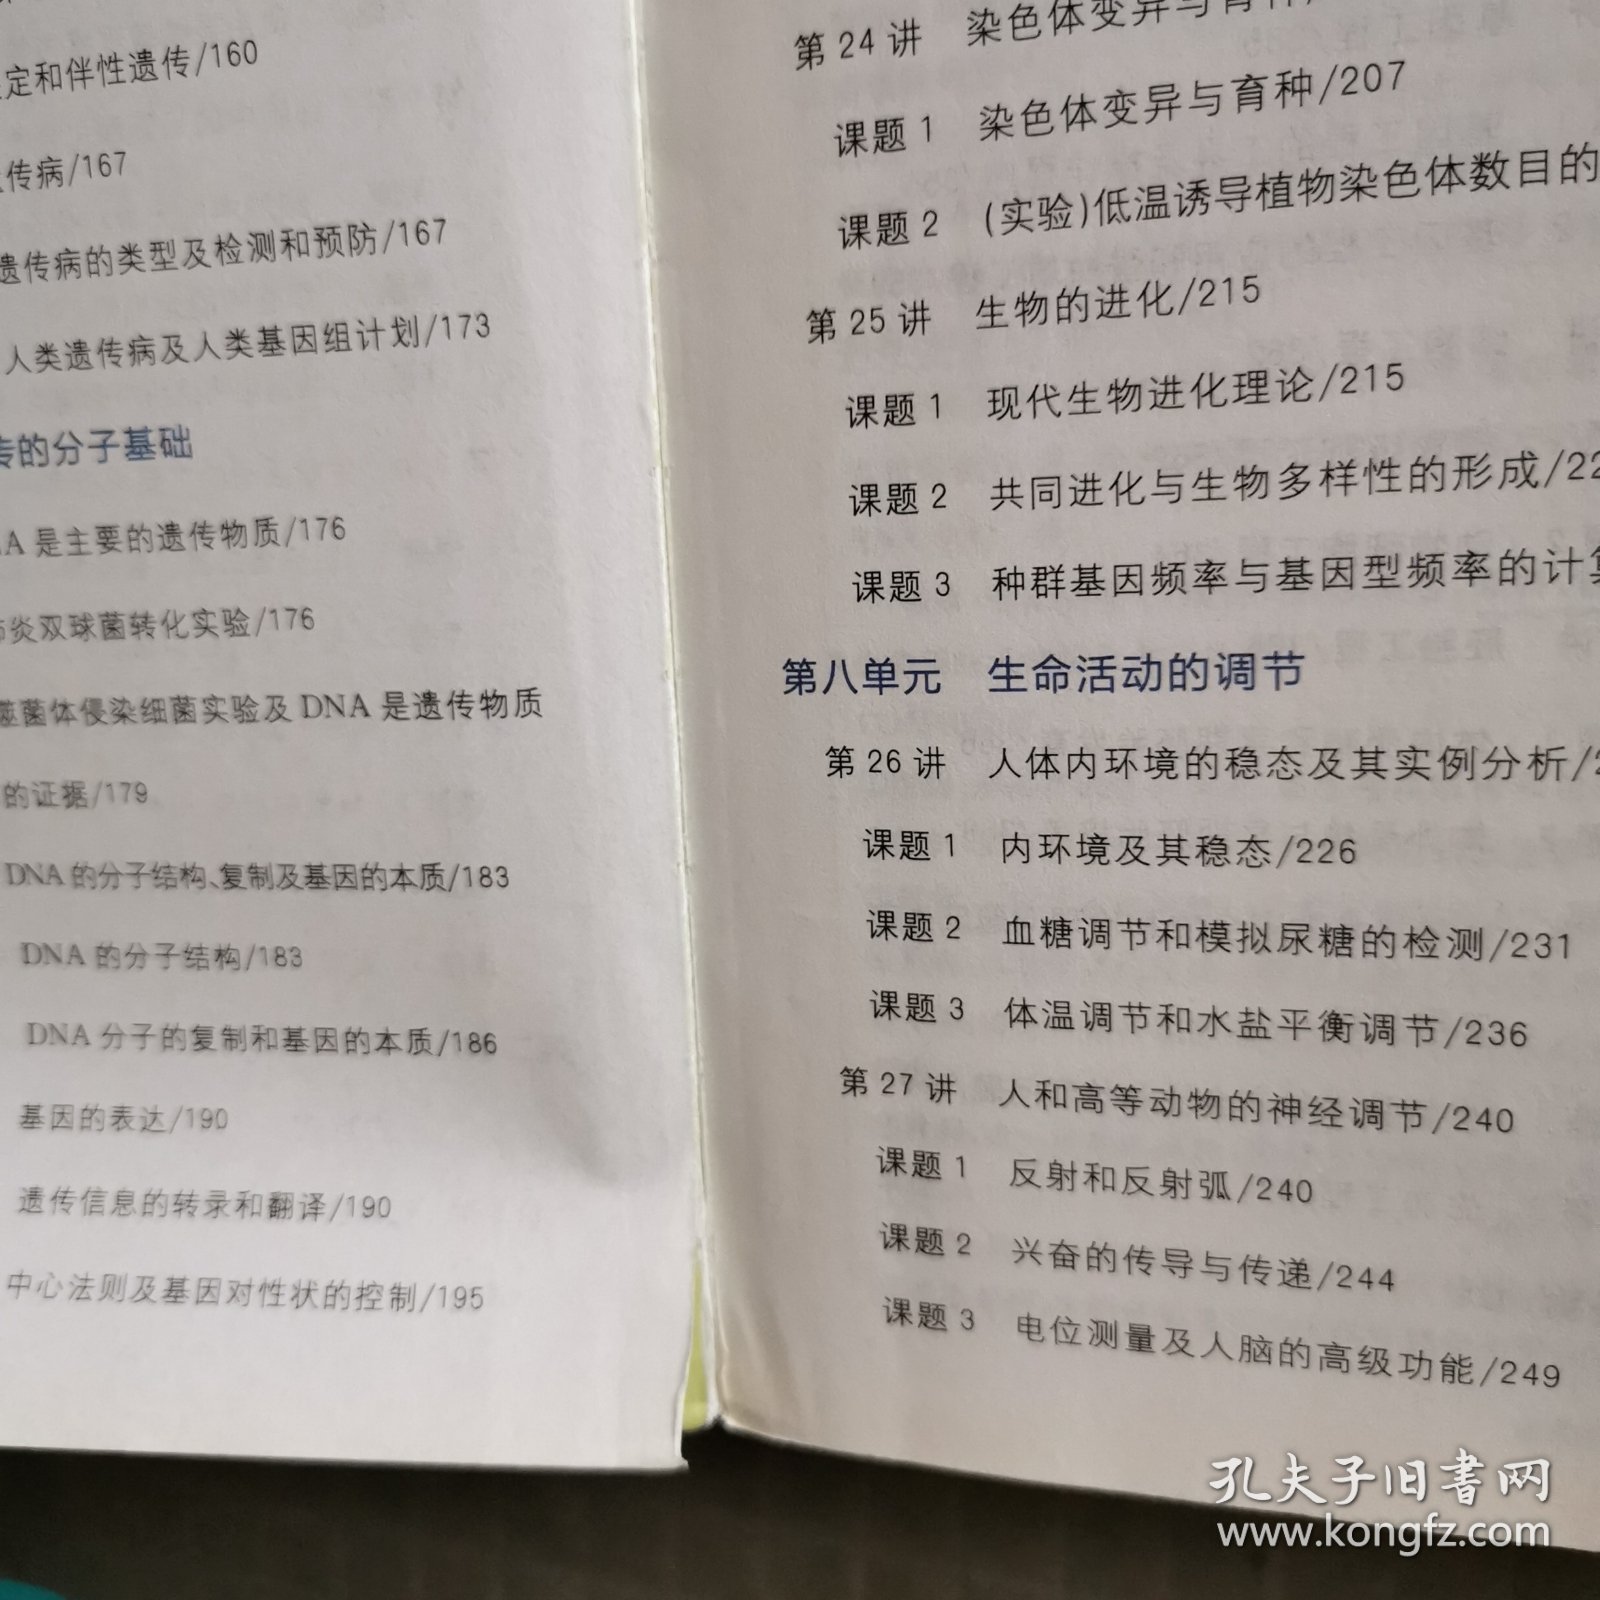 定和伴性遗传/160
传病/167
遗传病的类型及检测和预防/167
人类遗传病及人类基因组计划/173
传的分子基础
A 是主要的遗传物质/176
炎双球菌转化实验/176
噬菌体侵染细菌实验及 DNA 是遗传物质
的证据/179
DNA 的分子结构、复制及基因的本质/183
DNA 的分子结构/183
DNA 分子的复制和基因的本质/186
基因的表达/190
遗传信息的转录和翻译/190
中心法则及基因对性状的控制/195
第 24 讲 染色体变异与育种/
课题 1 染色体变异与育种/207
课题 2 (实验)低温诱导植物染色体数目的
第 25 讲 生物的进化/215
课题 1 现代生物进化理论/215
课题 2 共同进化与生物多样性的形成/22
课题 3 种群基因频率与基因型频率的计算
第八单元 生命活动的调节
第 26 讲 人体内环境的稳态及其实例分析/2
课题 1 内环境及其稳态/226
课题 2 血糖调节和模拟尿糖的检测/231
课题 3 体温调节和水盐平衡调节/236
第 27 讲 人和高等动物的神经调节/240
课题 1 反射和反射弧/240
课题 2 兴奋的传导与传递/244
课题 3 电位测量及人脑的高级功能/249
孔夫子旧书网
www.kongfz.com